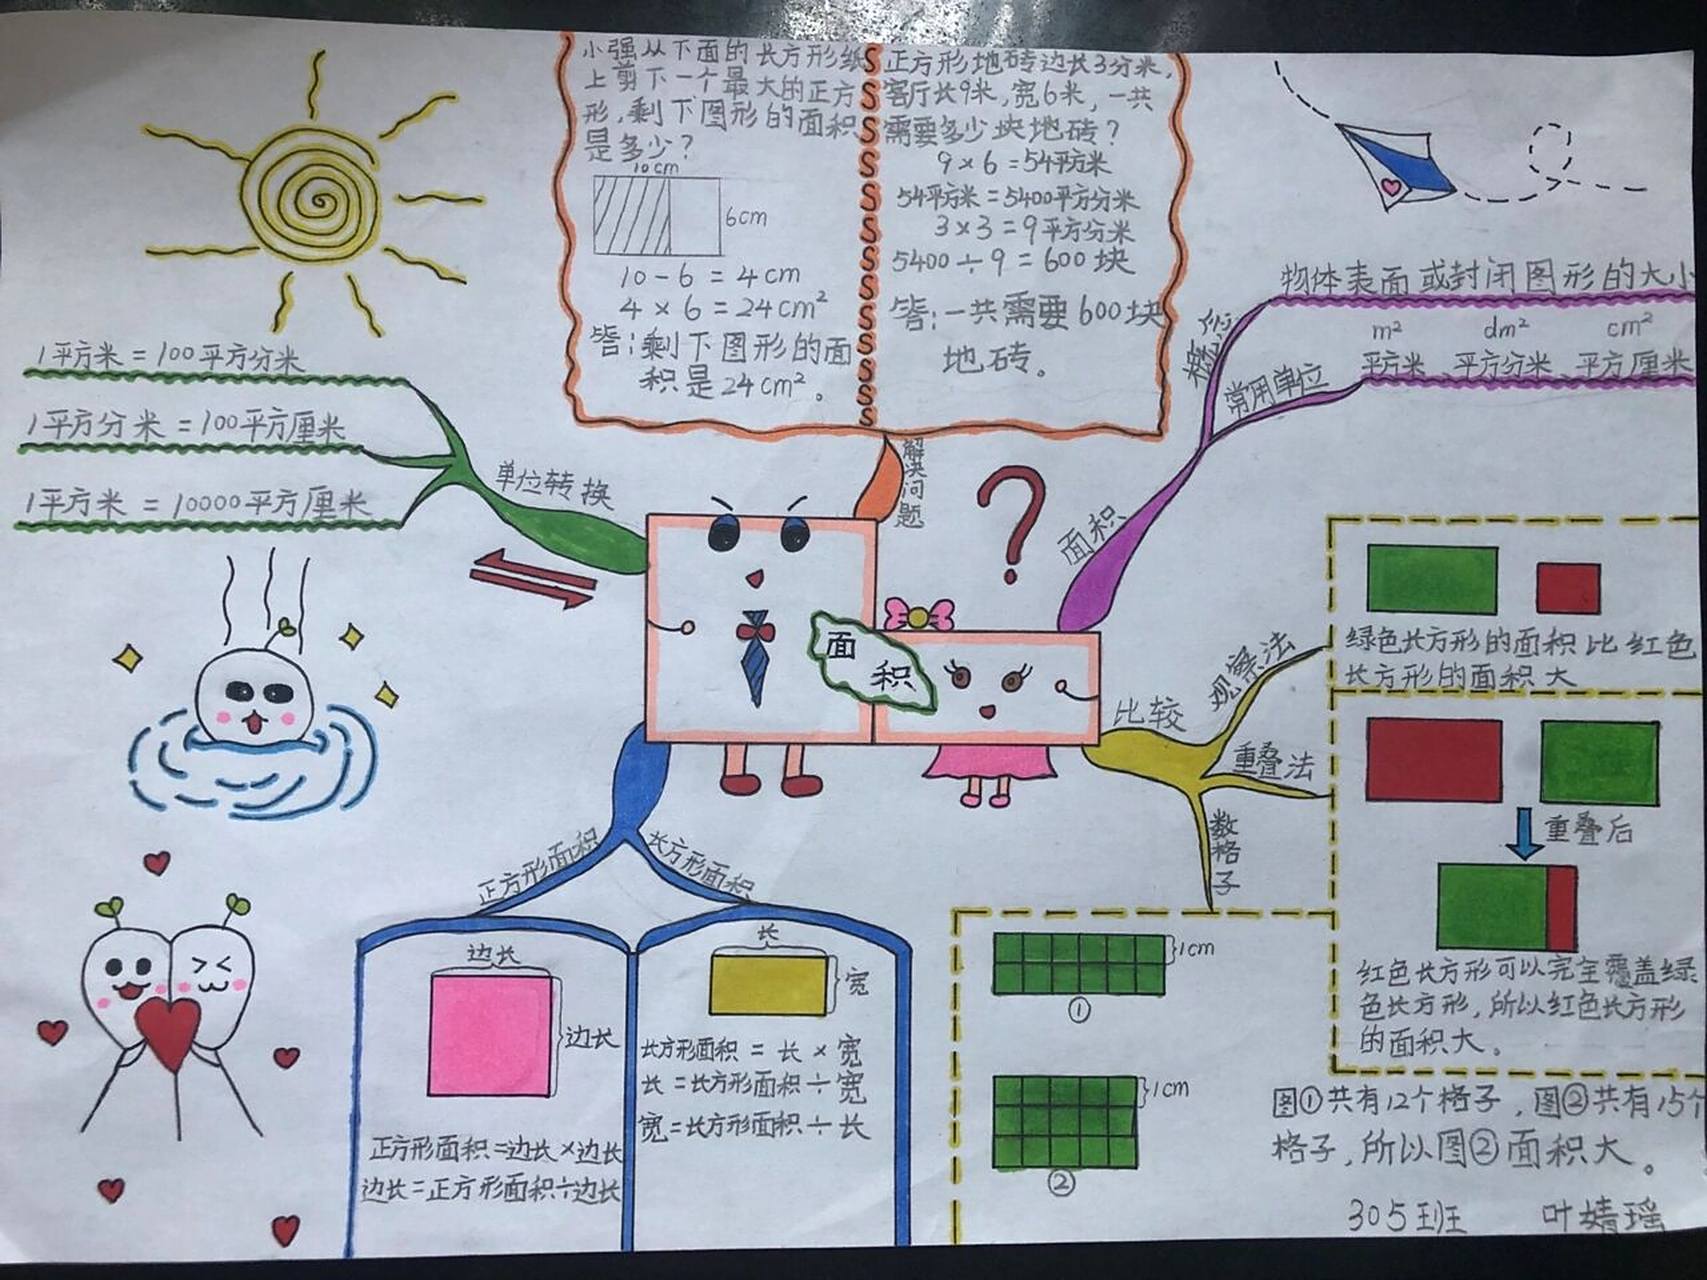 小强从下面的长方形纸
上剪下一个最大的正方
形,剩下图形的面积
是多少?
10cm
6cm
10-6=4cm
4×6=24cm²
答:剩下图形的面
积是24cm²。
正方形地砖边长3分米,
客厅长9米,宽6米,一共
需要多少块地砖?
9×6=54平方米
54平方米=5400平方分米
3×3=9平方分米
5400÷9=600块
答:一共需要600块
地砖。
解决问题
1平方米=100平方分米
1平方分米=100平方厘米
1平方米=10000平方厘米
单位转换
面积
面积
概念
物体表面或封闭图形的大小
常用单位
m² dm² cm²
平方米、平方分米、平方厘米
比较
观察法
重叠法
数格子
绿色长方形的面积比红色
长方形的面积大
重叠后
红色长方形可以完全覆盖绿
色长方形,所以红色长方形
的面积大。
1cm
①
1cm
②
图①共有12个格子,图②共有15个
格子,所以图②面积大。
正方形面积
长方形面积
边长
边长
正方形面积=边长×边长
边长=正方形面积÷边长
长
宽
长方形面积=长×宽
长=长方形面积÷宽
宽=长方形面积÷长
305班 叶婧瑶